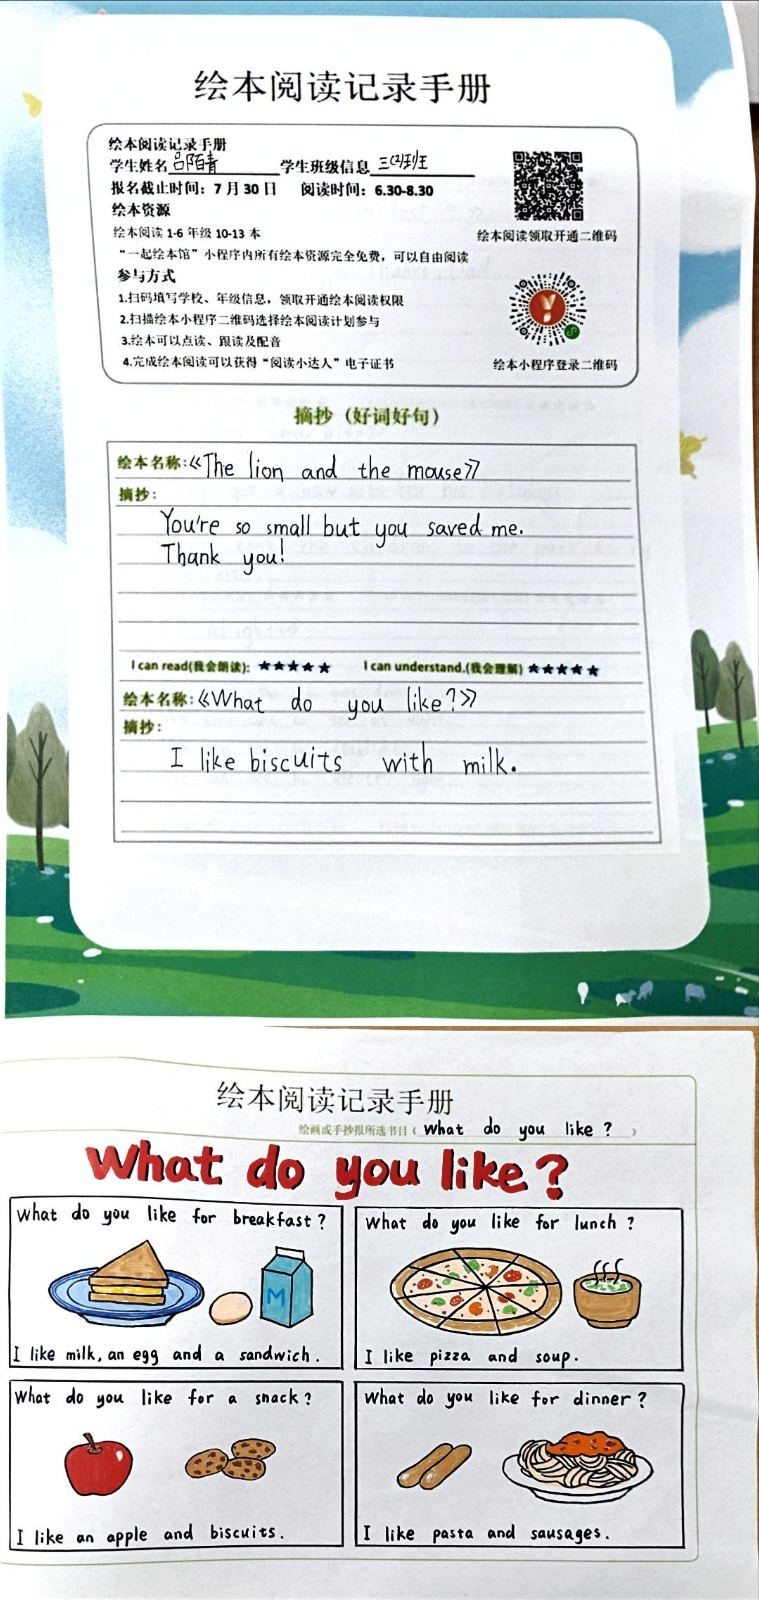 绘本阅读记录手册
绘本阅读记录手册
学生姓名 吕陌青 学生班级信息 三(2)班
报名截止时间：7月30日 阅读时间：6.30-8.30
绘本资源
绘本阅读1-6年级10-13本
“一起绘本馆”小程序内所有绘本资源完全免费，可以自由阅读
参与方式
1.扫码填写学校、年级信息，领取开通绘本阅读权限
2.扫描绘本小程序二维码选择绘本阅读计划参与
3.绘本可以点读、跟读及配音
4.完成绘本阅读可以获得“阅读小达人”电子证书
绘本阅读领取开通二维码
绘本小程序登录二维码
摘抄（好词好句）
绘本名称:《The lion and the mouse》
摘抄:
You're so small but you saved me.
Thank you!
I can read(我会朗读): ★★★★★ I can understand.(我会理解) ★★★★★
绘本名称:《What do you like?》
摘抄:
I like biscuits with milk.
绘本阅读记录手册
绘画或手抄报所选书目（ What do you like ? ）
What do you like?
What do you like for breakfast?
M
I like milk, an egg and a sandwich.
What do you like for lunch ?
I like pizza and soup.
What do you like for a snack?
I like an apple and biscuits.
What do you like for dinner ?
I like pasta and sausages.